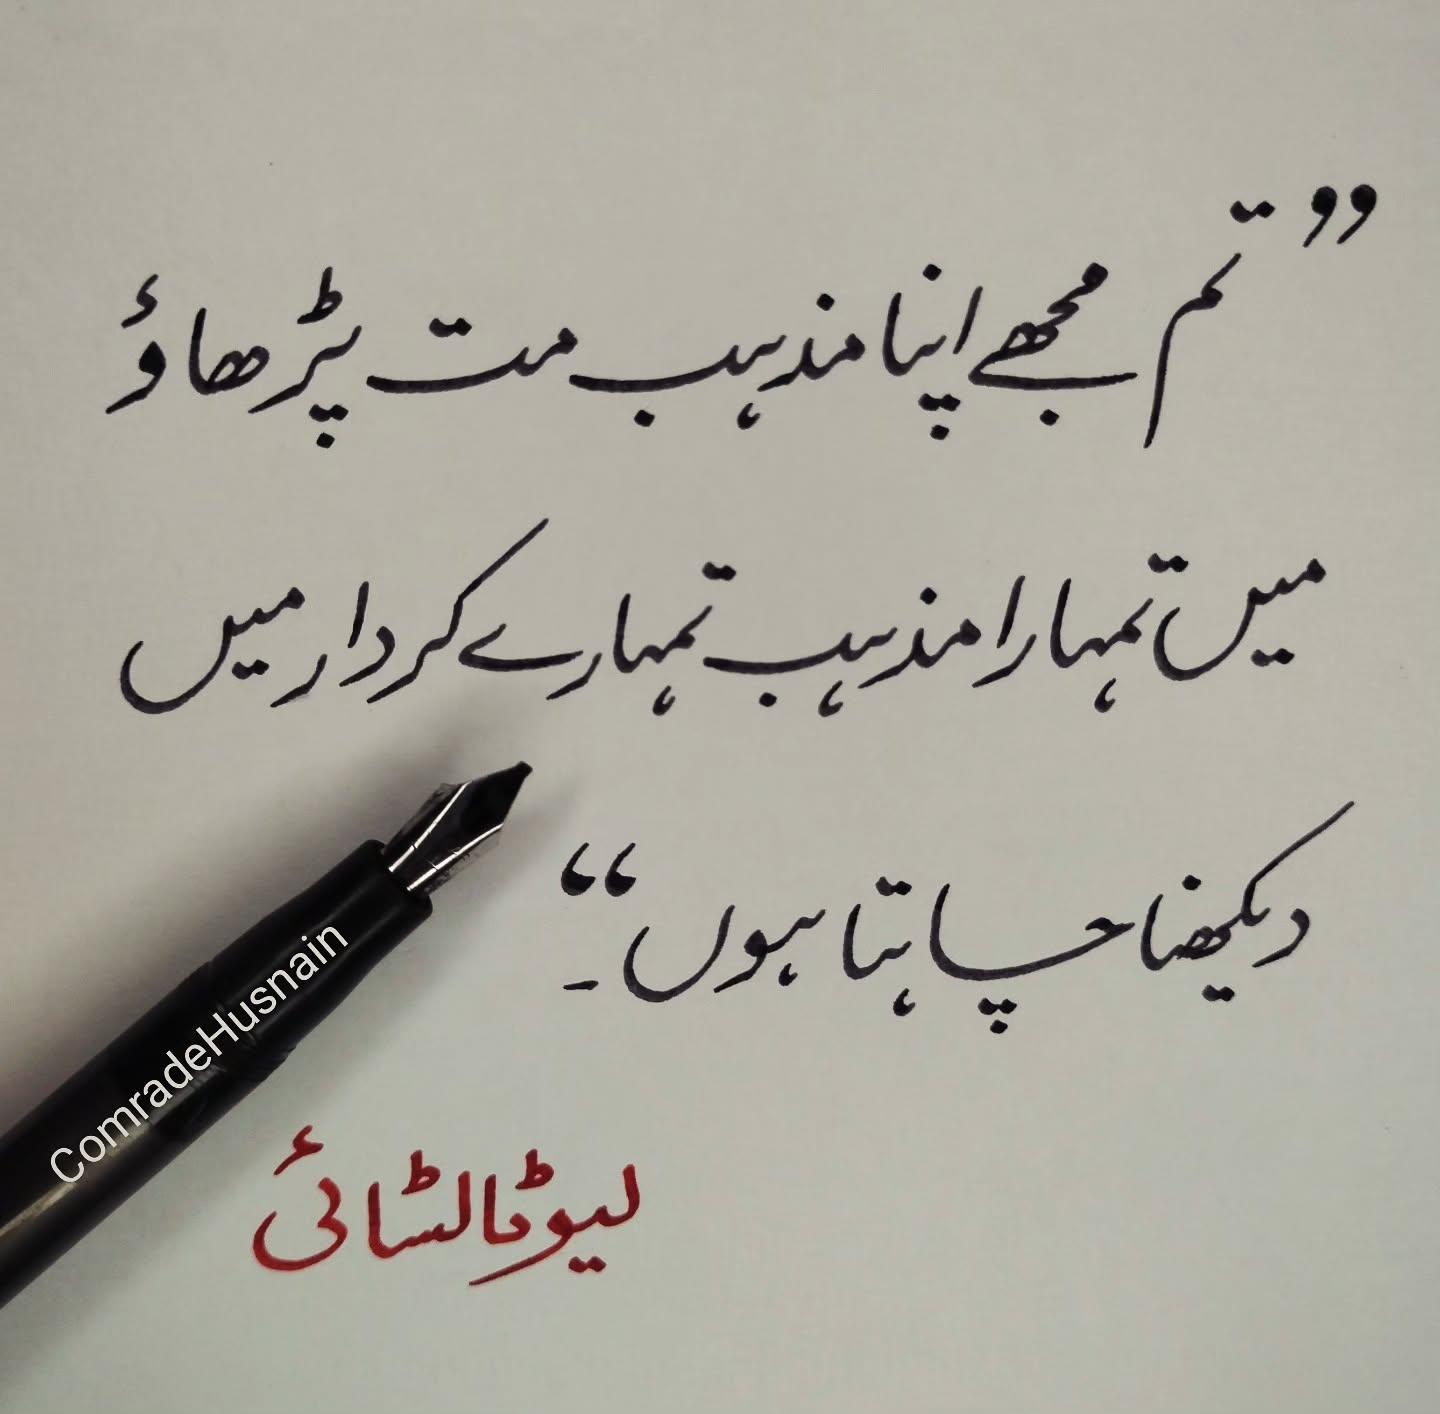 ”تم مجھے اپنا مذہب مت پڑھاؤ
میں تمہارا مذہب تمہارے کردار میں
دیکھنا چاہتا ہوں“۔
لیو ٹالسٹائی
ComradeHusnain